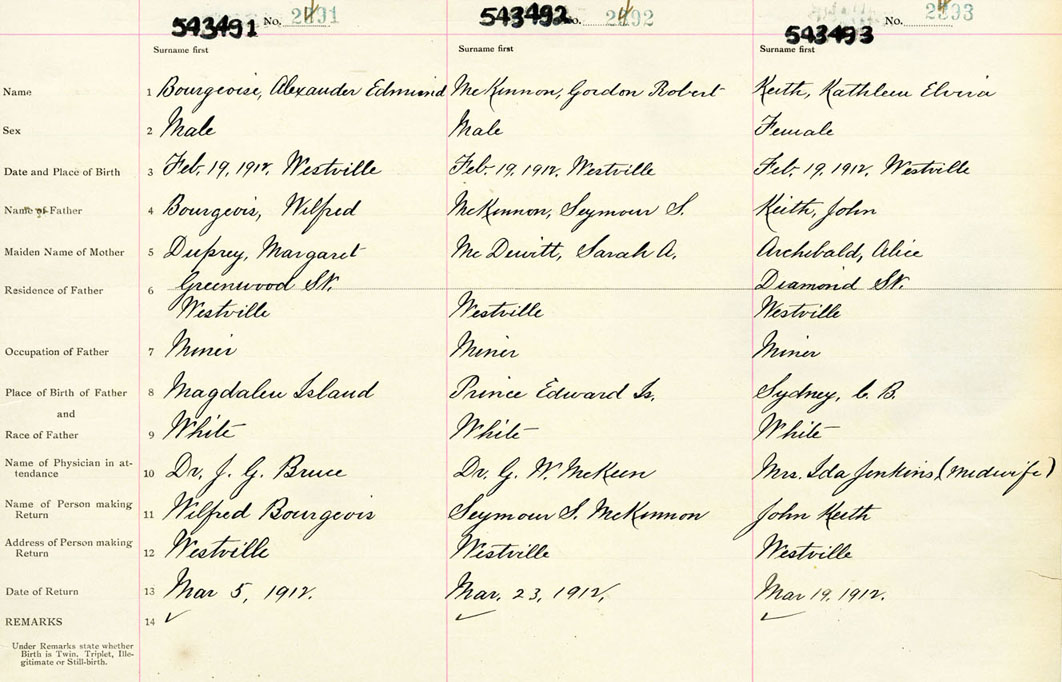 543491 No. 2491 543492 No. 2492 543493 No. 2393
Surname first Surname first Surname first
Name 1 Bourgeoise, Alexander Edmund McKinnon, Gordon Robert Keith, Kathleen Elvira
Sex 2 Male Male Female
Date and Place of Birth 3 Feb. 19, 1912, Westville Feb. 19, 1912, Westville Feb. 19, 1912, Westville
Name of Father 4 Bourgeois, Wilfred McKinnon, Seymour S. Keith, John
Maiden Name of Mother 5 Duprey, Margaret McDewitt, Sarah A. Archibald, Alice
Greenwood St. Diamond St.
Residence of Father 6
Westville Westville Westville
Occupation of Father 7 Miner Miner Miner
Place of Birth of Father 8 Magdalen Island Prince Edward Is. Sydney, C. B.
and
Race of Father 9 White White White
Name of Physician in at-
tendance 10 Dr. J. G. Bruce Dr. G. W. McKeen Mrs. Ida Jenkins, (Midwife)
Name of Person making
Return 11 Wilfred Bourgeois Seymour S. McKinnon John Keith
Address of Person making
Return 12 Westville Westville Westville
Date of Return 13 Mar 5, 1912. Mar. 23, 1912, Mar 19, 1912.
REMARKS 14 ✓ ✓ ✓
Under Remarks state whether
Birth is Twin, Triplet, Ille-
gitimate or Still-birth.